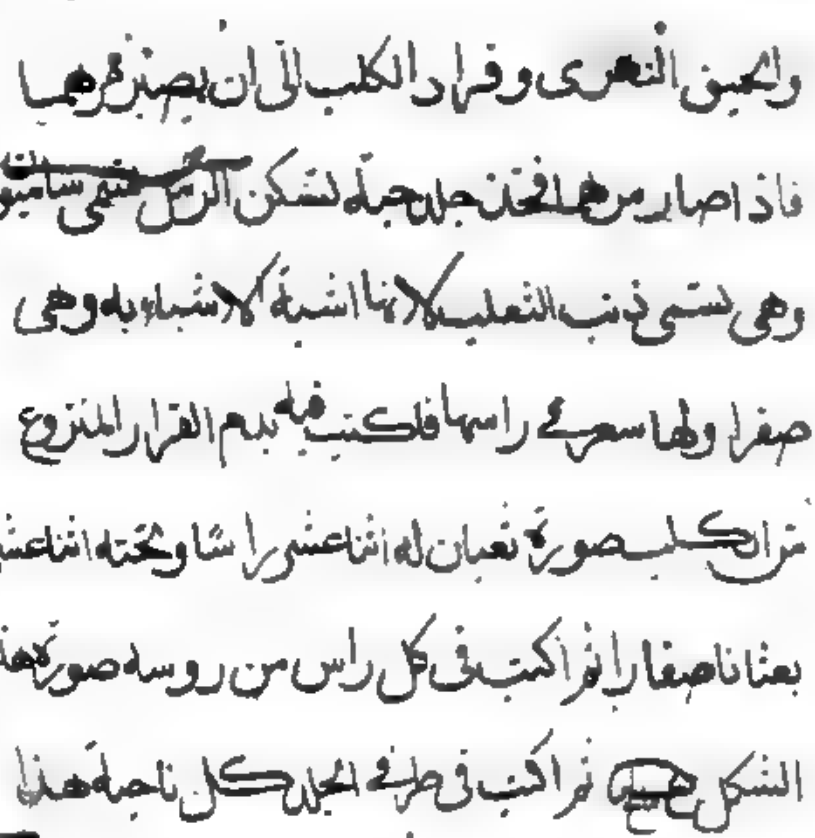 والحبق النهرى وقراد الكلب الى ان يصير مرهما
فاذا صار مرهما فخذ جلد حية لشكن الرس تسمى
وهى تسمى ذنب الثعلب لانها اشبة الاشياء به وهى
صفرا ولها سعر فى راسها فاكتب فيه بدم القرار المنزوع
من الكلب صورة تعبان له اثنا عشر راسا وتحته اثنا عشر
بعثانا صغارا ثم اكتب فى كل راس من روسه صورة هذا
الشكل ثم اكتب فى طرف الجلد كل ناحية هذا